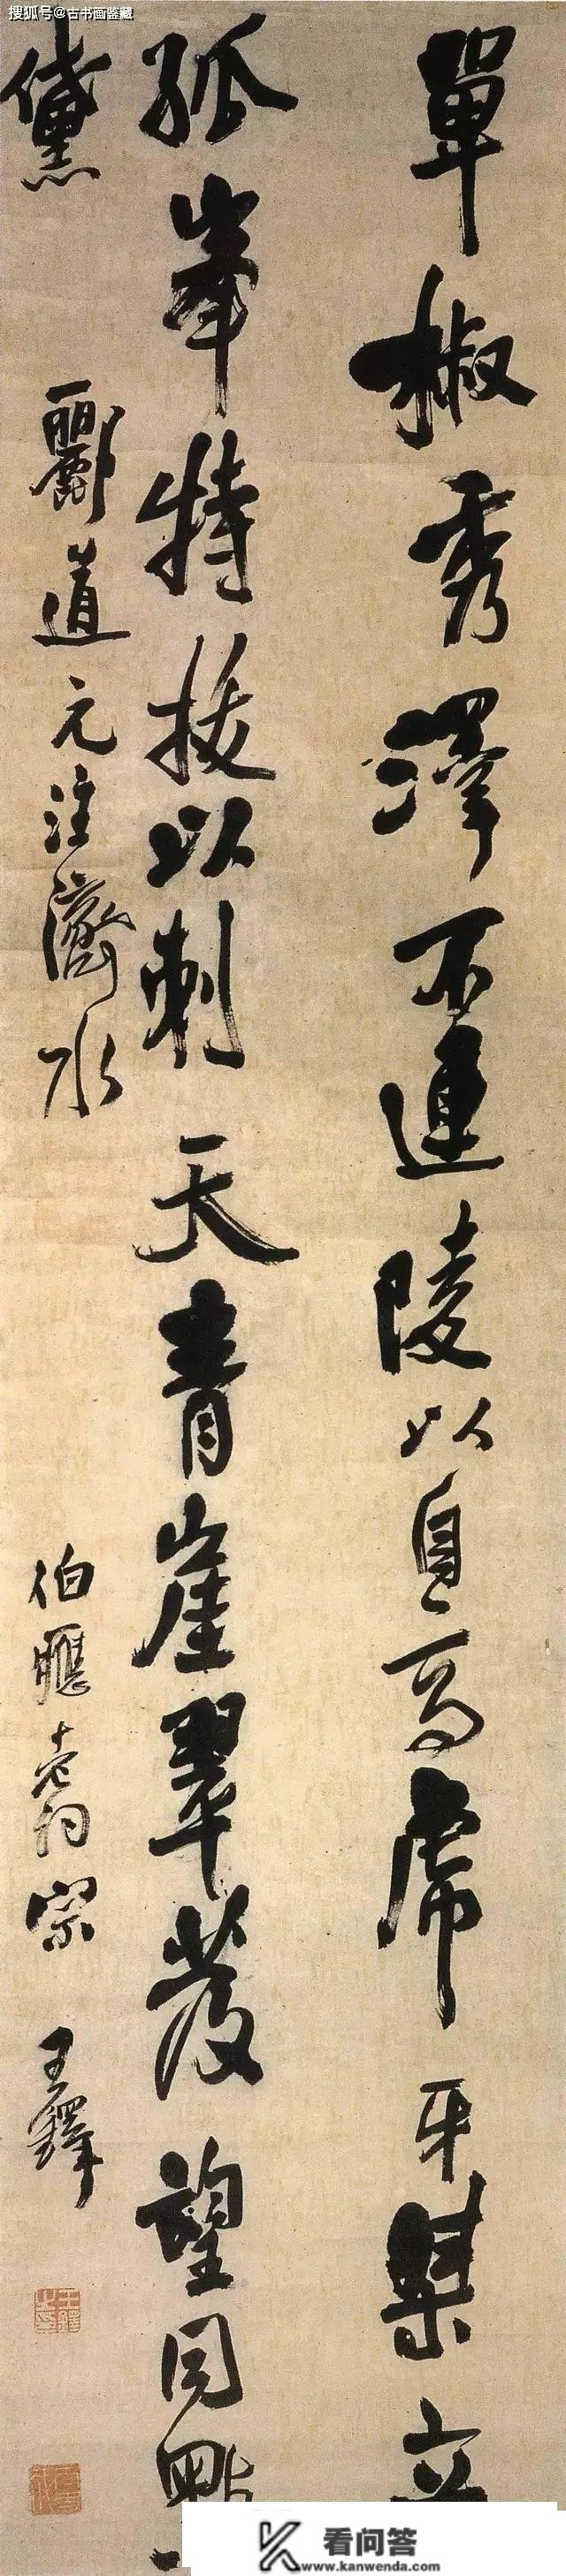 搜狐号@古书画鉴藏
單椒秀澤不連陵以自高虎牙桀立
孤峯特拔以刺天青崖翠發望同點
黛 酈道元注濟水 伯應老詞宗 王鐸
王鐸之印
看问答
www.kanwenda.com